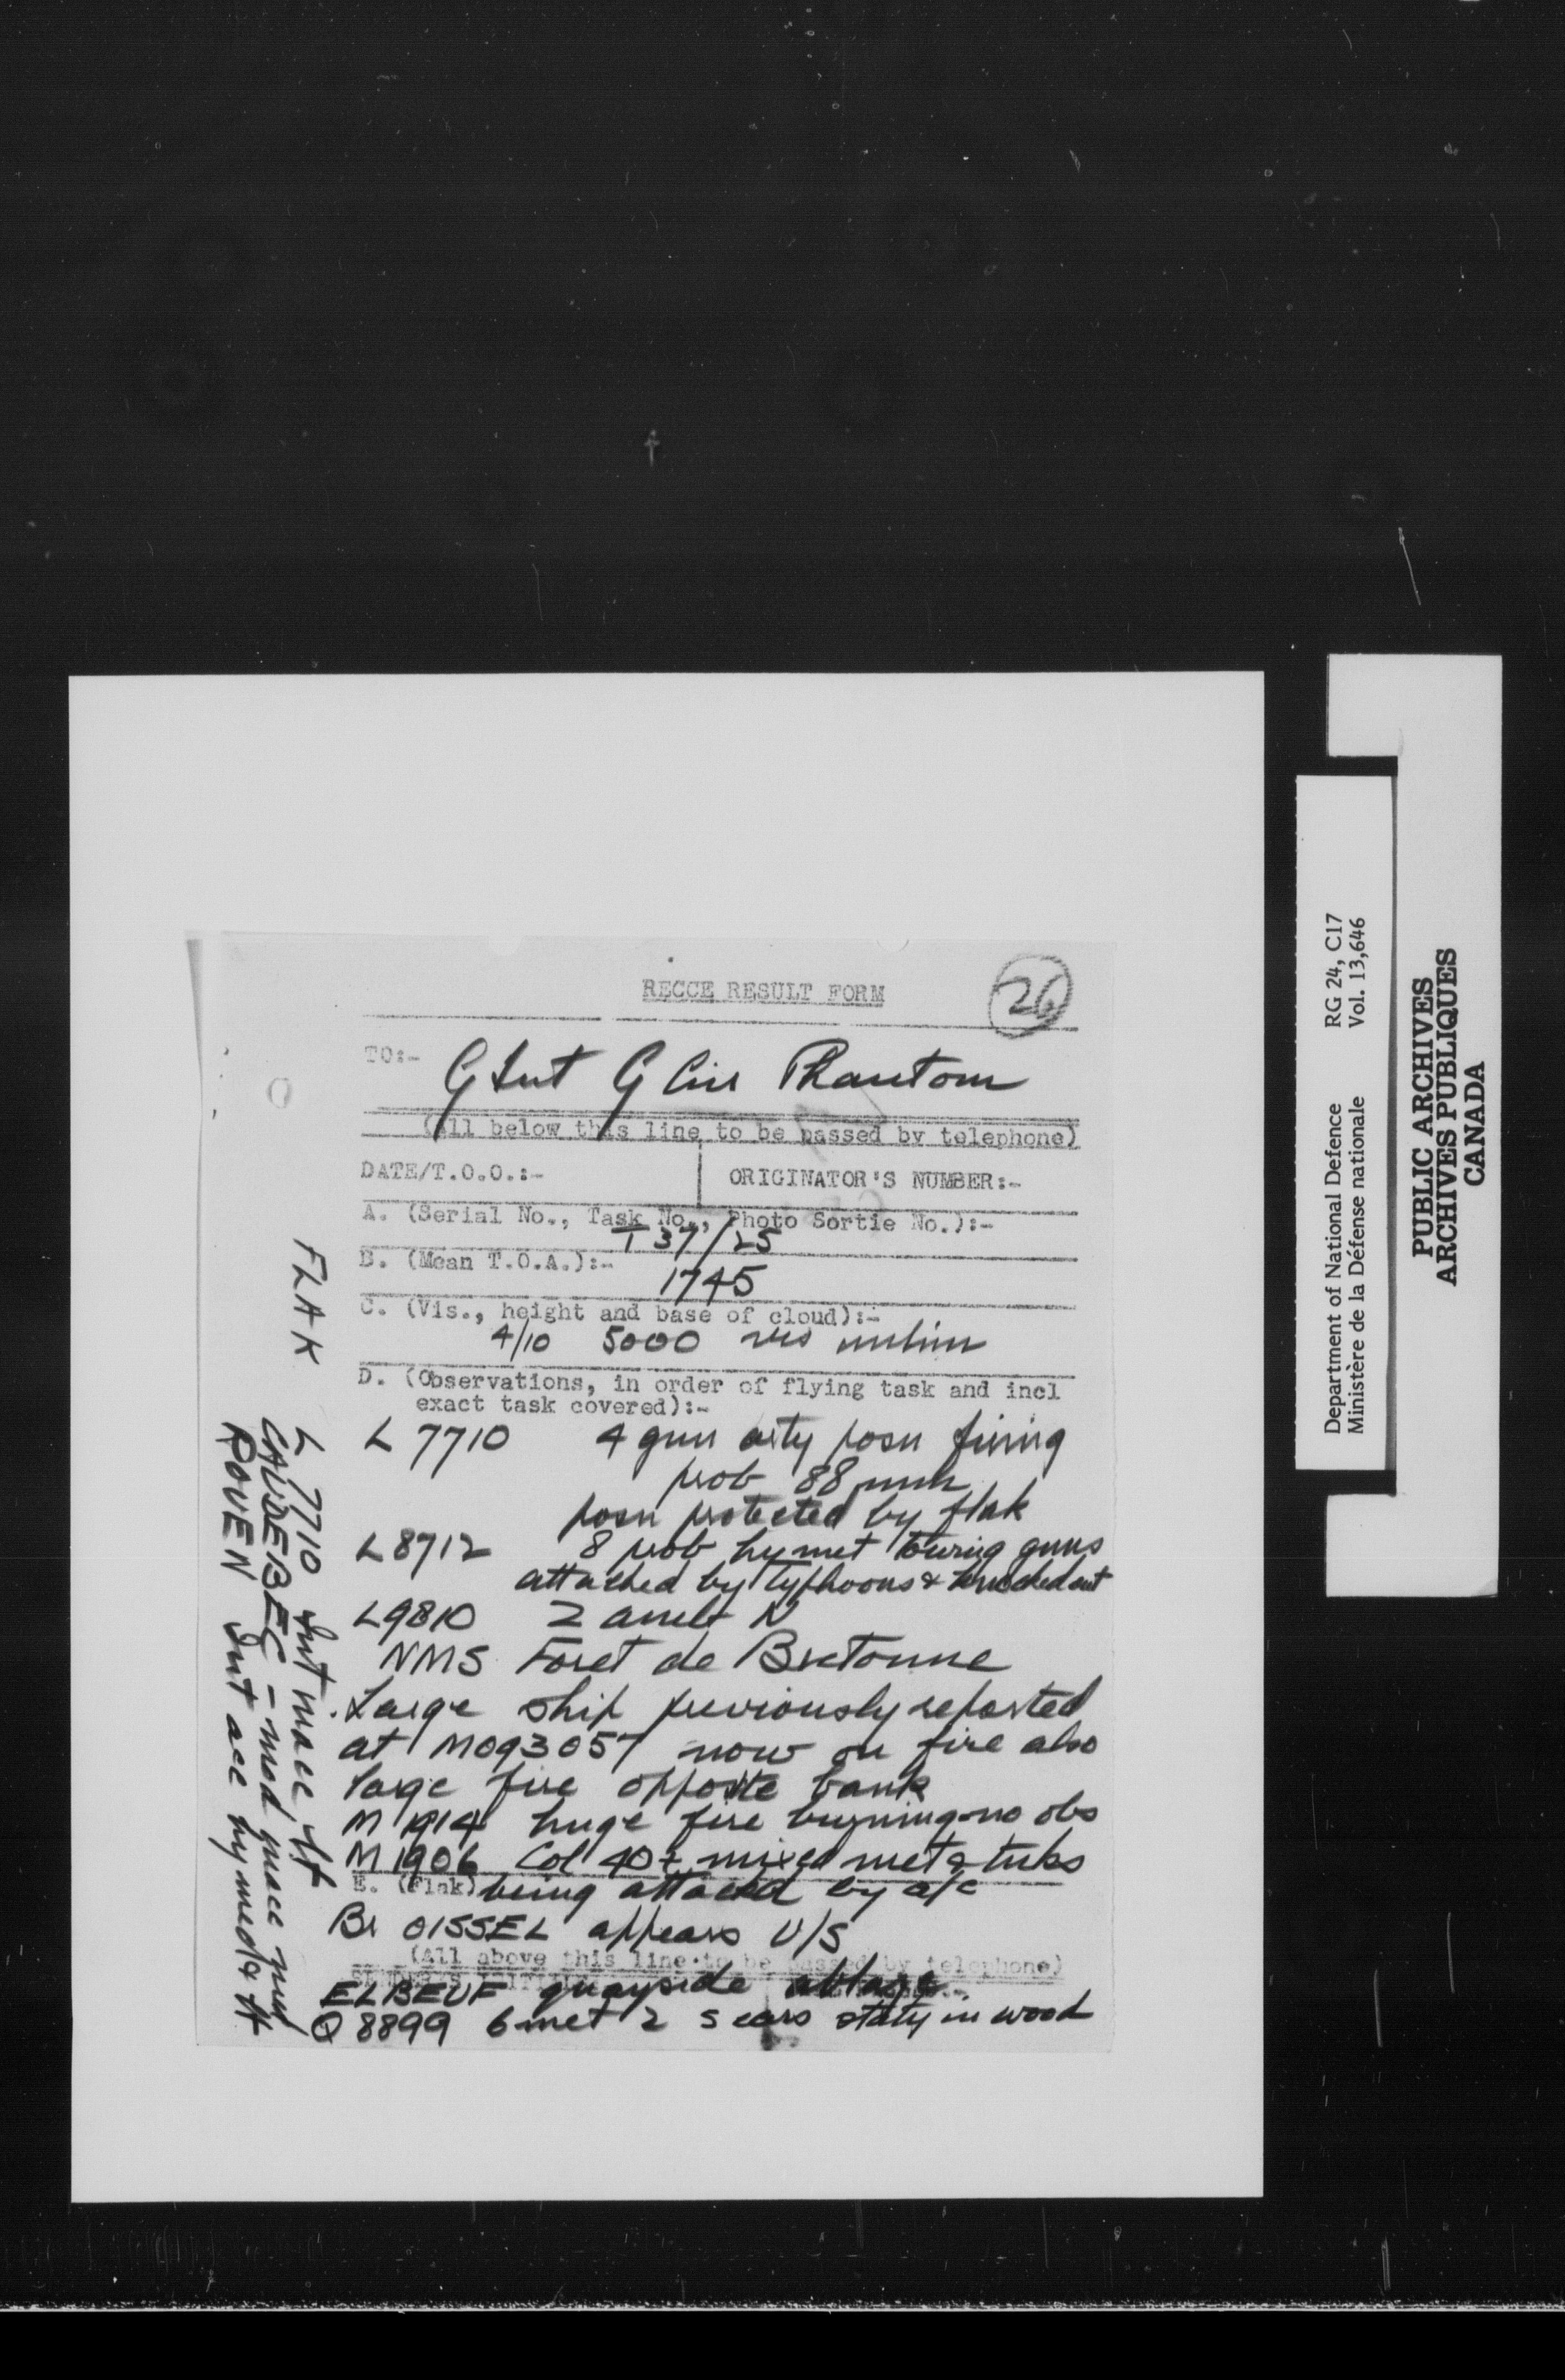 RECCE RESULT FORM
26
TO:- G Int G Air Phantom
(All below this line to be passed by telephone)
DATE/T.O.O.:- ORIGINATOR'S NUMBER:-
A. (Serial No., Task No., Photo Sortie No.):-
T 37/25
B. (Mean T.O.A.):-
1745
C. (Vis., height and base of cloud):-
4/10 5000 vis unlim
D. (Observations, in order of flying task and incl
exact task covered):-
L 7710 4 gun arty posn firing
prob 88 mm
posn protected by flak
L8712 8 prob hy met towing guns
attacked by Typhoons & knocked out
L9810 2 amb N
NMS Foret de Bretonne
Large ship previously reported
at M093057 now on fire also
large fire opposite bank
M 1914 huge fire burning no obs
M 1906 Col 40+ mixed met & tnks
E. (Flak)
being attacked by a/c
Br OISSEL appears U/S
(All above this line to be passed by telephone)
ELBEUF quayside ablaze
Q 8899 6 met 2 s cars staty in wood
FLAK
L 7710 Int lt
CAUDEBEC - mod
ROUEN Int acc hy med & lt
Department of National Defence RG 24, C17
Ministère de la Défense nationale Vol. 13,646
PUBLIC ARCHIVES
ARCHIVES PUBLIQUES
CANADA